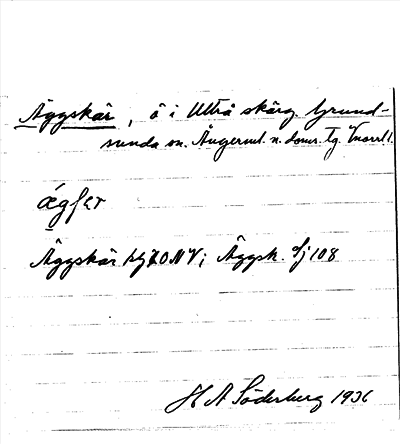 Äggskär, ö i Utterå skärg. Grund-
sunda sn. Ångerml. n. doms. tg. Vnorrl l.
ægʃer
Äggskär hg 70 NV; Äggsk. Sj 108
H A Söderberg 1936